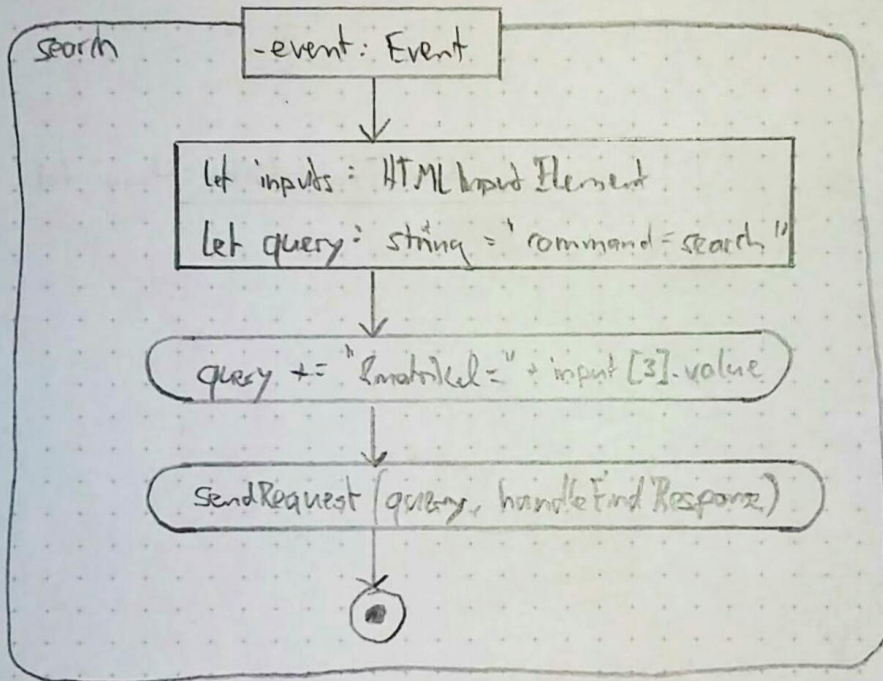 search
-event: Event
let inputs: HTMLInputElement
let query: string = "command=search"
query += "&matrikel=" + input[3].value
sendRequest(query, handleFindResponse)